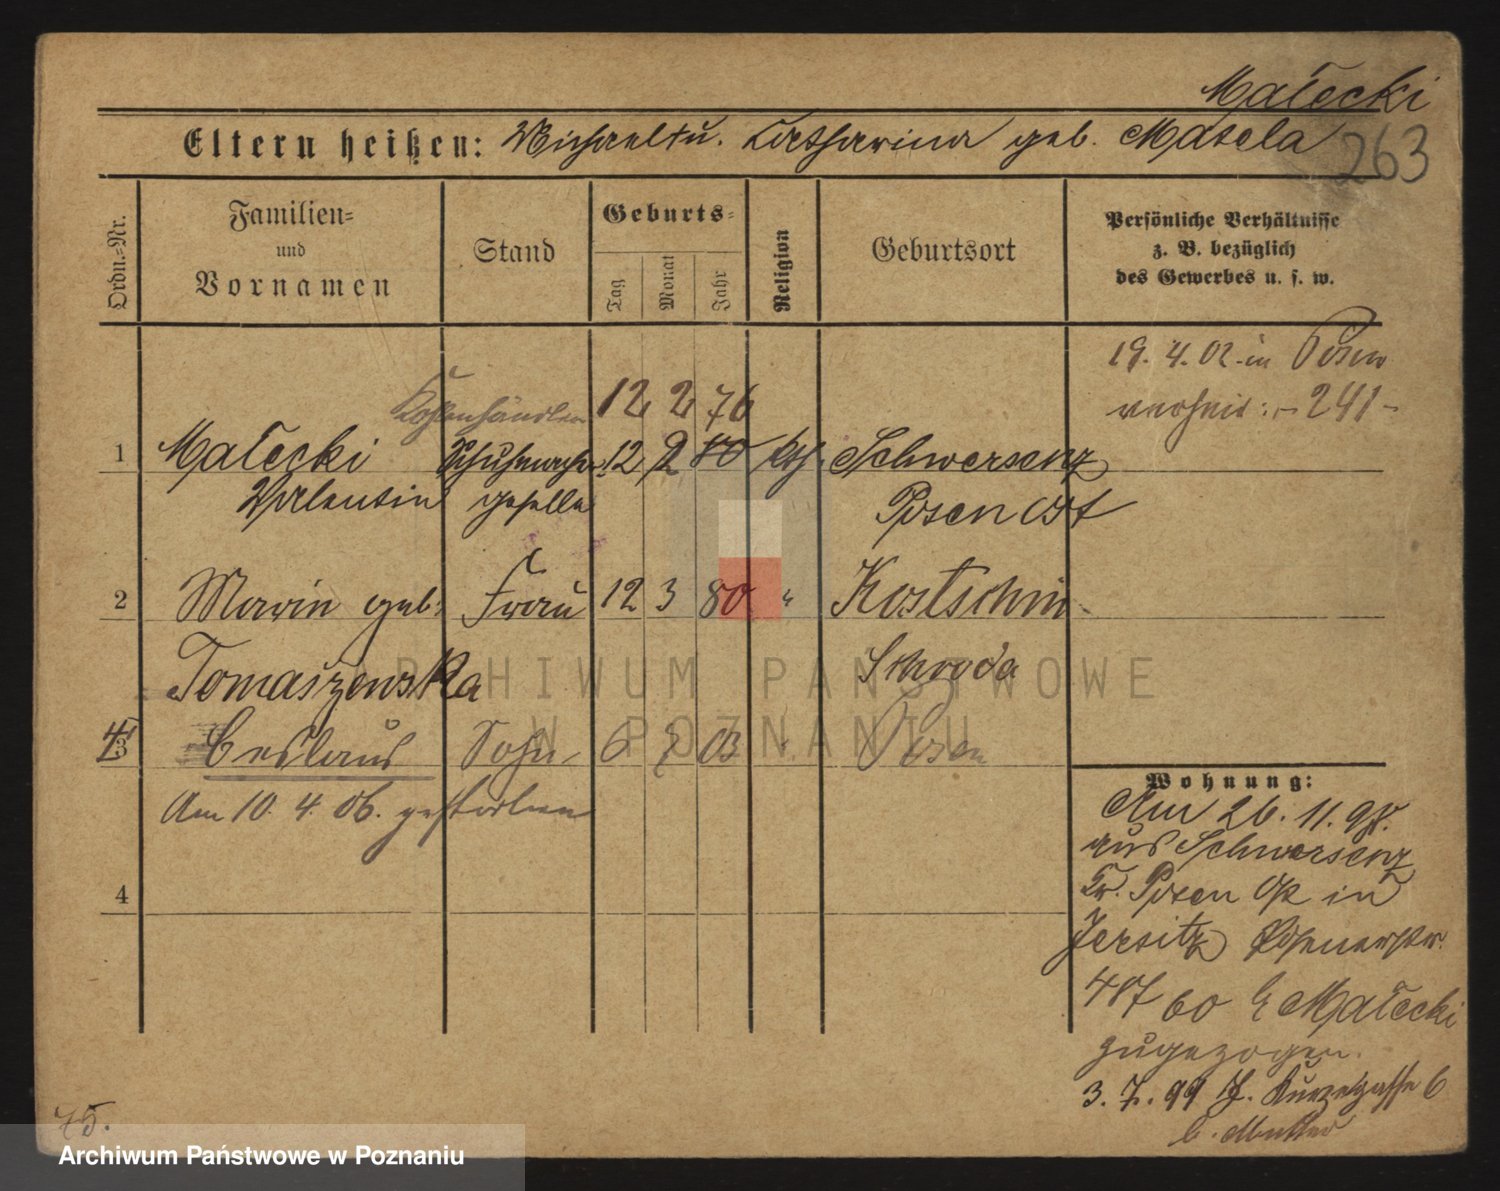 Małecki
263
Eltern heißen: Michael u. Catharina geb. Matela
Ordn.=Nr.
Familien=
und
Vornamen
Stand
Geburts=
Tag
Monat
Jahr
Religion
Geburtsort
Persönliche Verhältnisse
z. B. bezüglich
des Gewerbes u. s. w.
19. 4. 02. in Posen
verheir: - 241 -
Kohlenhändler 12 2 76
1 Małecki Schuhmacher 12 2 80 kth. Schwersenz
Valentin geselle Posen Ost
2 Marin geb: Frau 12 3 80 " Kostschin
Tomaszewska Schroda
3 Ceslaus Sohn 6 7 03 " Posen
Am 10. 4. 06. gestorben
4
Wohnung:
Am 26. 11. 98.
aus Schwersenz
Kr. Posen O/P in
Jersitz
60 Małecki
zugezogen.
3. 7. 99 J. Kurzegasse 6
b. Mutter
75.
ARCHIWUM PAŃSTWOWE
W POZNANIU
Archiwum Państwowe w Poznaniu